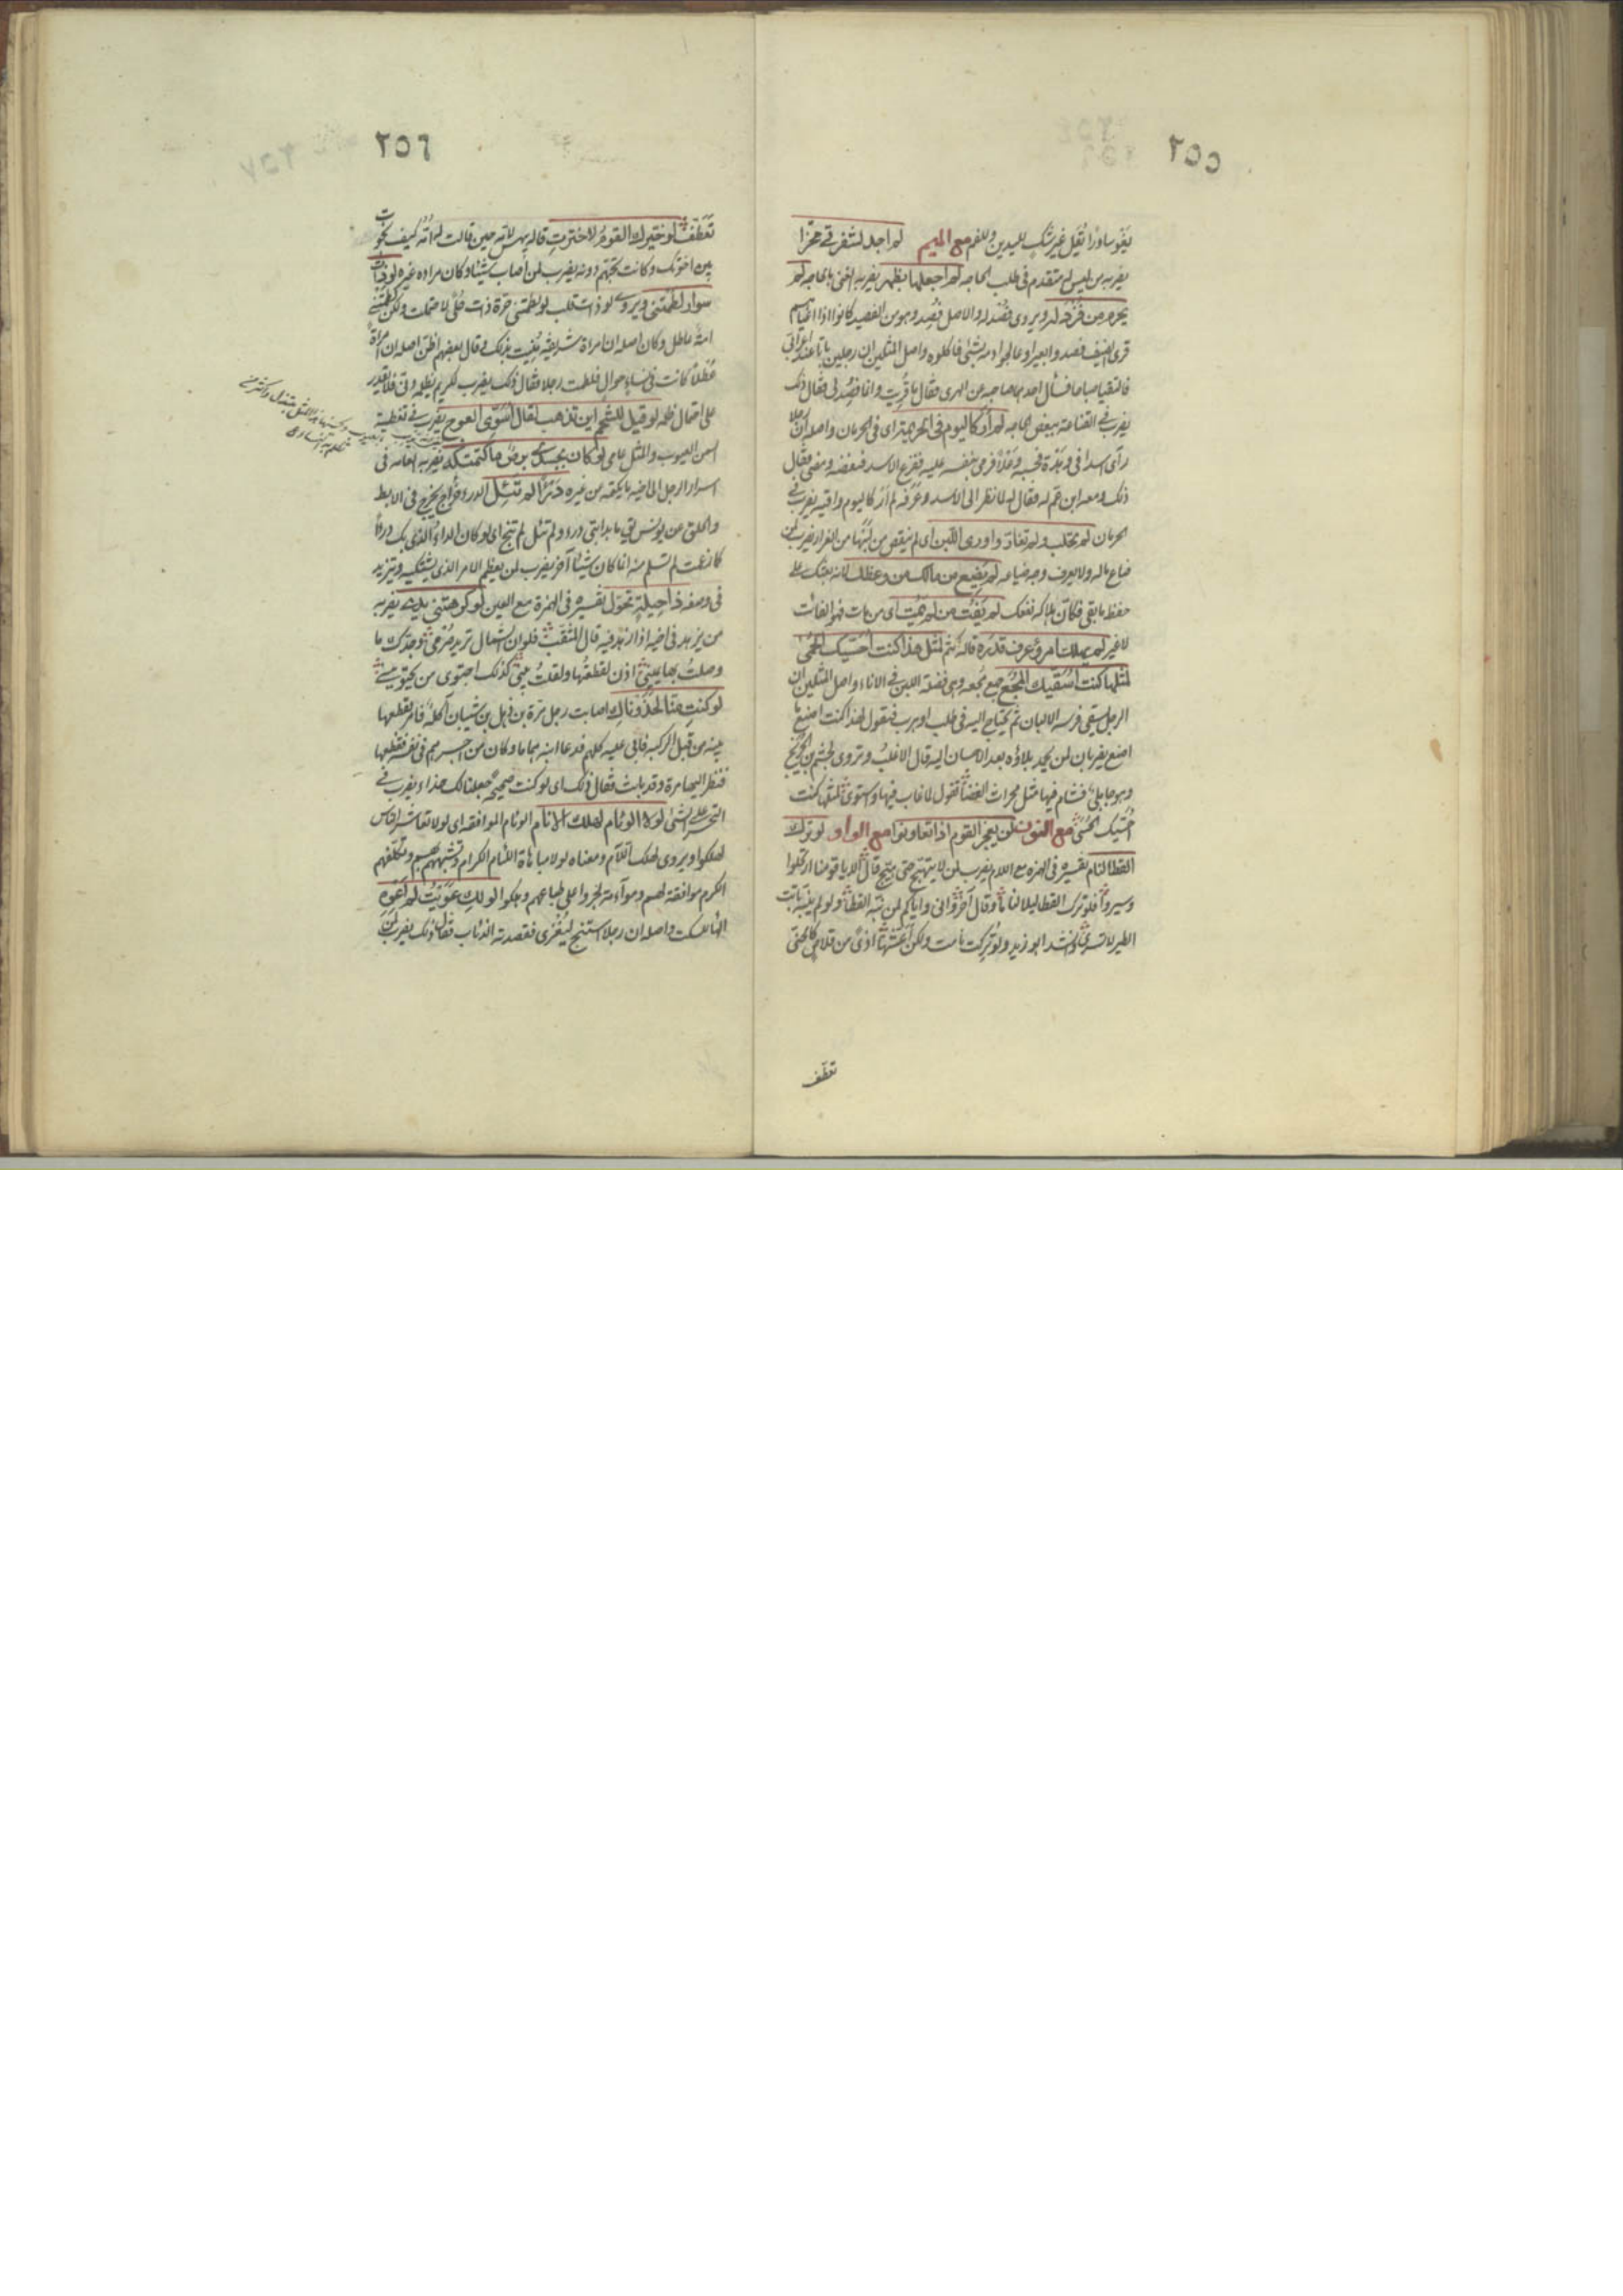 ٢٥٥
يغوسا وذا نقل غير شك لليدين وللفم مع الميم لم اجد لشفرتي محزا
يضرب لمن ليس له متقدم في طلب الحاجه لم اجعلها بظهر يضربه المعنى بالحاجه لم
يحرم من فزد له ويروى فصد له والاصل فصد وهو من الفصيد كانوا اذا اعياهم
قرى الضيف فصدوا البعير وعالجوا دمه بشئ فاكلوه واصل المثل ان رجلين باتا عند اعرابي
فالتقيا صباحا فسأل احدهما صاحبه عن القرى فقال ما قريت وانما فصد لي فقال ذلك
يضرب في القناعة ببعض الحاجه لم ار كاليوم في الحريمة اى في الحرمان واصله ان رجلا
رأى اسدا في وهدة فحسبه وعلا فرمى بنفسه عليه ففزع الاسد فنفضه ومضى فقال
ذلك ومعه ابن عم له وقال له لما نظر الى الاسد وعرفه لم ار كاليوم واقيه يضرب في
الحرمان لم يحلب ولم تغار واودى اللبن اى لم ينقص من لبنها من الغرار يضرب لمن
ضاع ماله ولا يعرف وجه ضياعه لم يضع من مالك من وعظك لانه يحثك على
حفظ ما بقي فكأن هلاكه نفعك لم يفت من لم يمت اى من مات فهو الفائت
لا غير لم يهلك امرؤ عرف قدره قاله اكثم لمثل هذا كنت احسيك الحسى
لمثلها كنت اسقيك المجع جمع مجعه وهي فضلة اللبن في الاناء واصل المثلين ان
الرجل يسقى فرسه الالبان ثم يحتاج اليه في طلب او هرب فيقول لهذا كنت اصنع ما
اصنع يضربان لمن يحمد بلاؤه بعد الاحسان اليه قال الاغلب وتروى لجشم بن الخزرج
وهو جاهلي فشام فيها مثل محراث الغضا تقول لما غاب فيها واستوى لمثلها كنت
احسيك الحسى مع النون لن يعجز القوم اذا تعاونوا مع الواو لو ترك
القطا لنام تفسيره في الهمزه مع اللام يضرب لمن لا يتهيج حتى يهيج قال الا يا قومنا ارتحلوا
وسيروا فلو ترك القطا ليلا لناما وقال آخر واني واياكم لمن نبه القطا ولو لم ينبه باتت
الطير لا تسرى وانشد ابو زيد ولو تركت نامت ولكن اعشتها اذى من قلاص كالحني
تعطف
٢٥٦
تعطف لو خيرك القوم لاخترت قاله بيهس لامه حين قالت له امه كيف نجوت
من بين اخوتك وكانت تحبهم دونه يضرب لمن اصاب شيئا وكان مراده غيره لو ذات
سوار لطمتني ويروى لو ذات قلب لو لطمتني حرة ذات حلى لاحتملت ولكن لطمتني
امة عاطل وكان اصله ان امراة شريفة منيت بذلك وقال بعضهم اظن اصله ان امراة
عطلا كانت في نساء حوال فلطمت رجلا فقال ذلك يضرب لكريم يظلمه دني فلا يقدر
على احتمال ظلمه لو قيل للشحم اين تذهب لقال اسوى العوج يضرب في تغطية
السمن العيوب والمثل عامى لو كان بجسدي برص ما كتمتكه يضربه العامه في
اسرار الرجل الى اخيه ما يكتمه من غيره درءا لم تبئل الدرء خراج يخرج في الابط
والحلق عن يونس يقال ما بدابتي درء ولم تئل لم تنج اى لو كان الداء الذي بك درءا
كما زعمت لم تسلم منه انما كان شيئا آخر يضرب لمن يعظم الامر الذي يشتكيه ويتزيد
في وصفه ذا حيلة تحول تفسيره في الهمزة مع العين لو كرهتني يدي يضربه
من يزهد في اخيه اذا زهد فيه قال المثقب فلو ان الشمال تريد صرمى وجدك ما
وصلت بها يميني اذن لقطعتها ولقلت بيني كذلك اجتوى من يجتويني
لو كنت منا لحذوناك اصابت رجل مرة بن ذهل بن شيبان اكلة فامر بقطعها
بنيه من قبل الركبه فابى عليه كلهم فدعا ابنه هماما وكان من اجسرهم في نفسه فقطعها
فنظر اليها مرة وقد بانت فقال ذلك اى لو كنت صحيحة جعلنا لك حذاء يضرب في
التحسر على الشئ لولا الوئام لهلك الانام الوئام الموافقه اى لولا تعاشر الناس
لهلكوا ويروى لهلك اللئام ومعناه لولا مباهاة اللئام الكرام وتشبههم بهم وتكلفهم
الكرم موافقة لهم ومواءمة لجروا على طباعهم وهلكوا لو لك عويت لم اعوه
الهاء للسكت واصله ان رجلا استنبح ليقرى فقصدته الذئاب فقال ذلك يضرب لمن